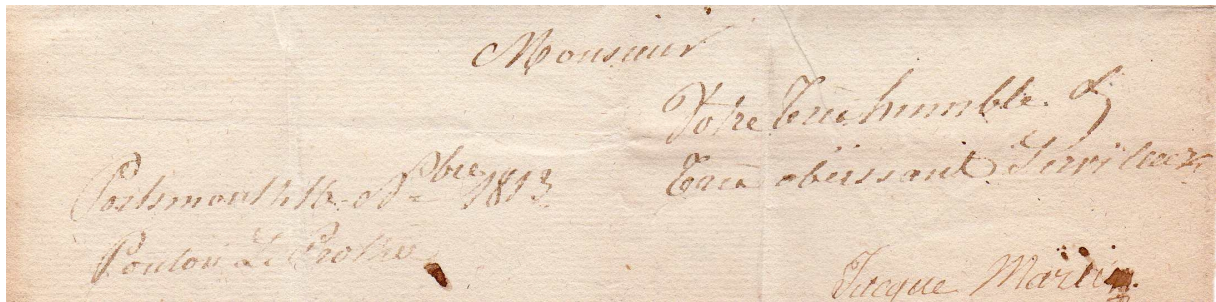 Monsieur
Votre Très humble &
Très obëissant Serviteur
Portsmouth 16 Nbre 1813
Ponton Le Prothée
Jacque Martin.